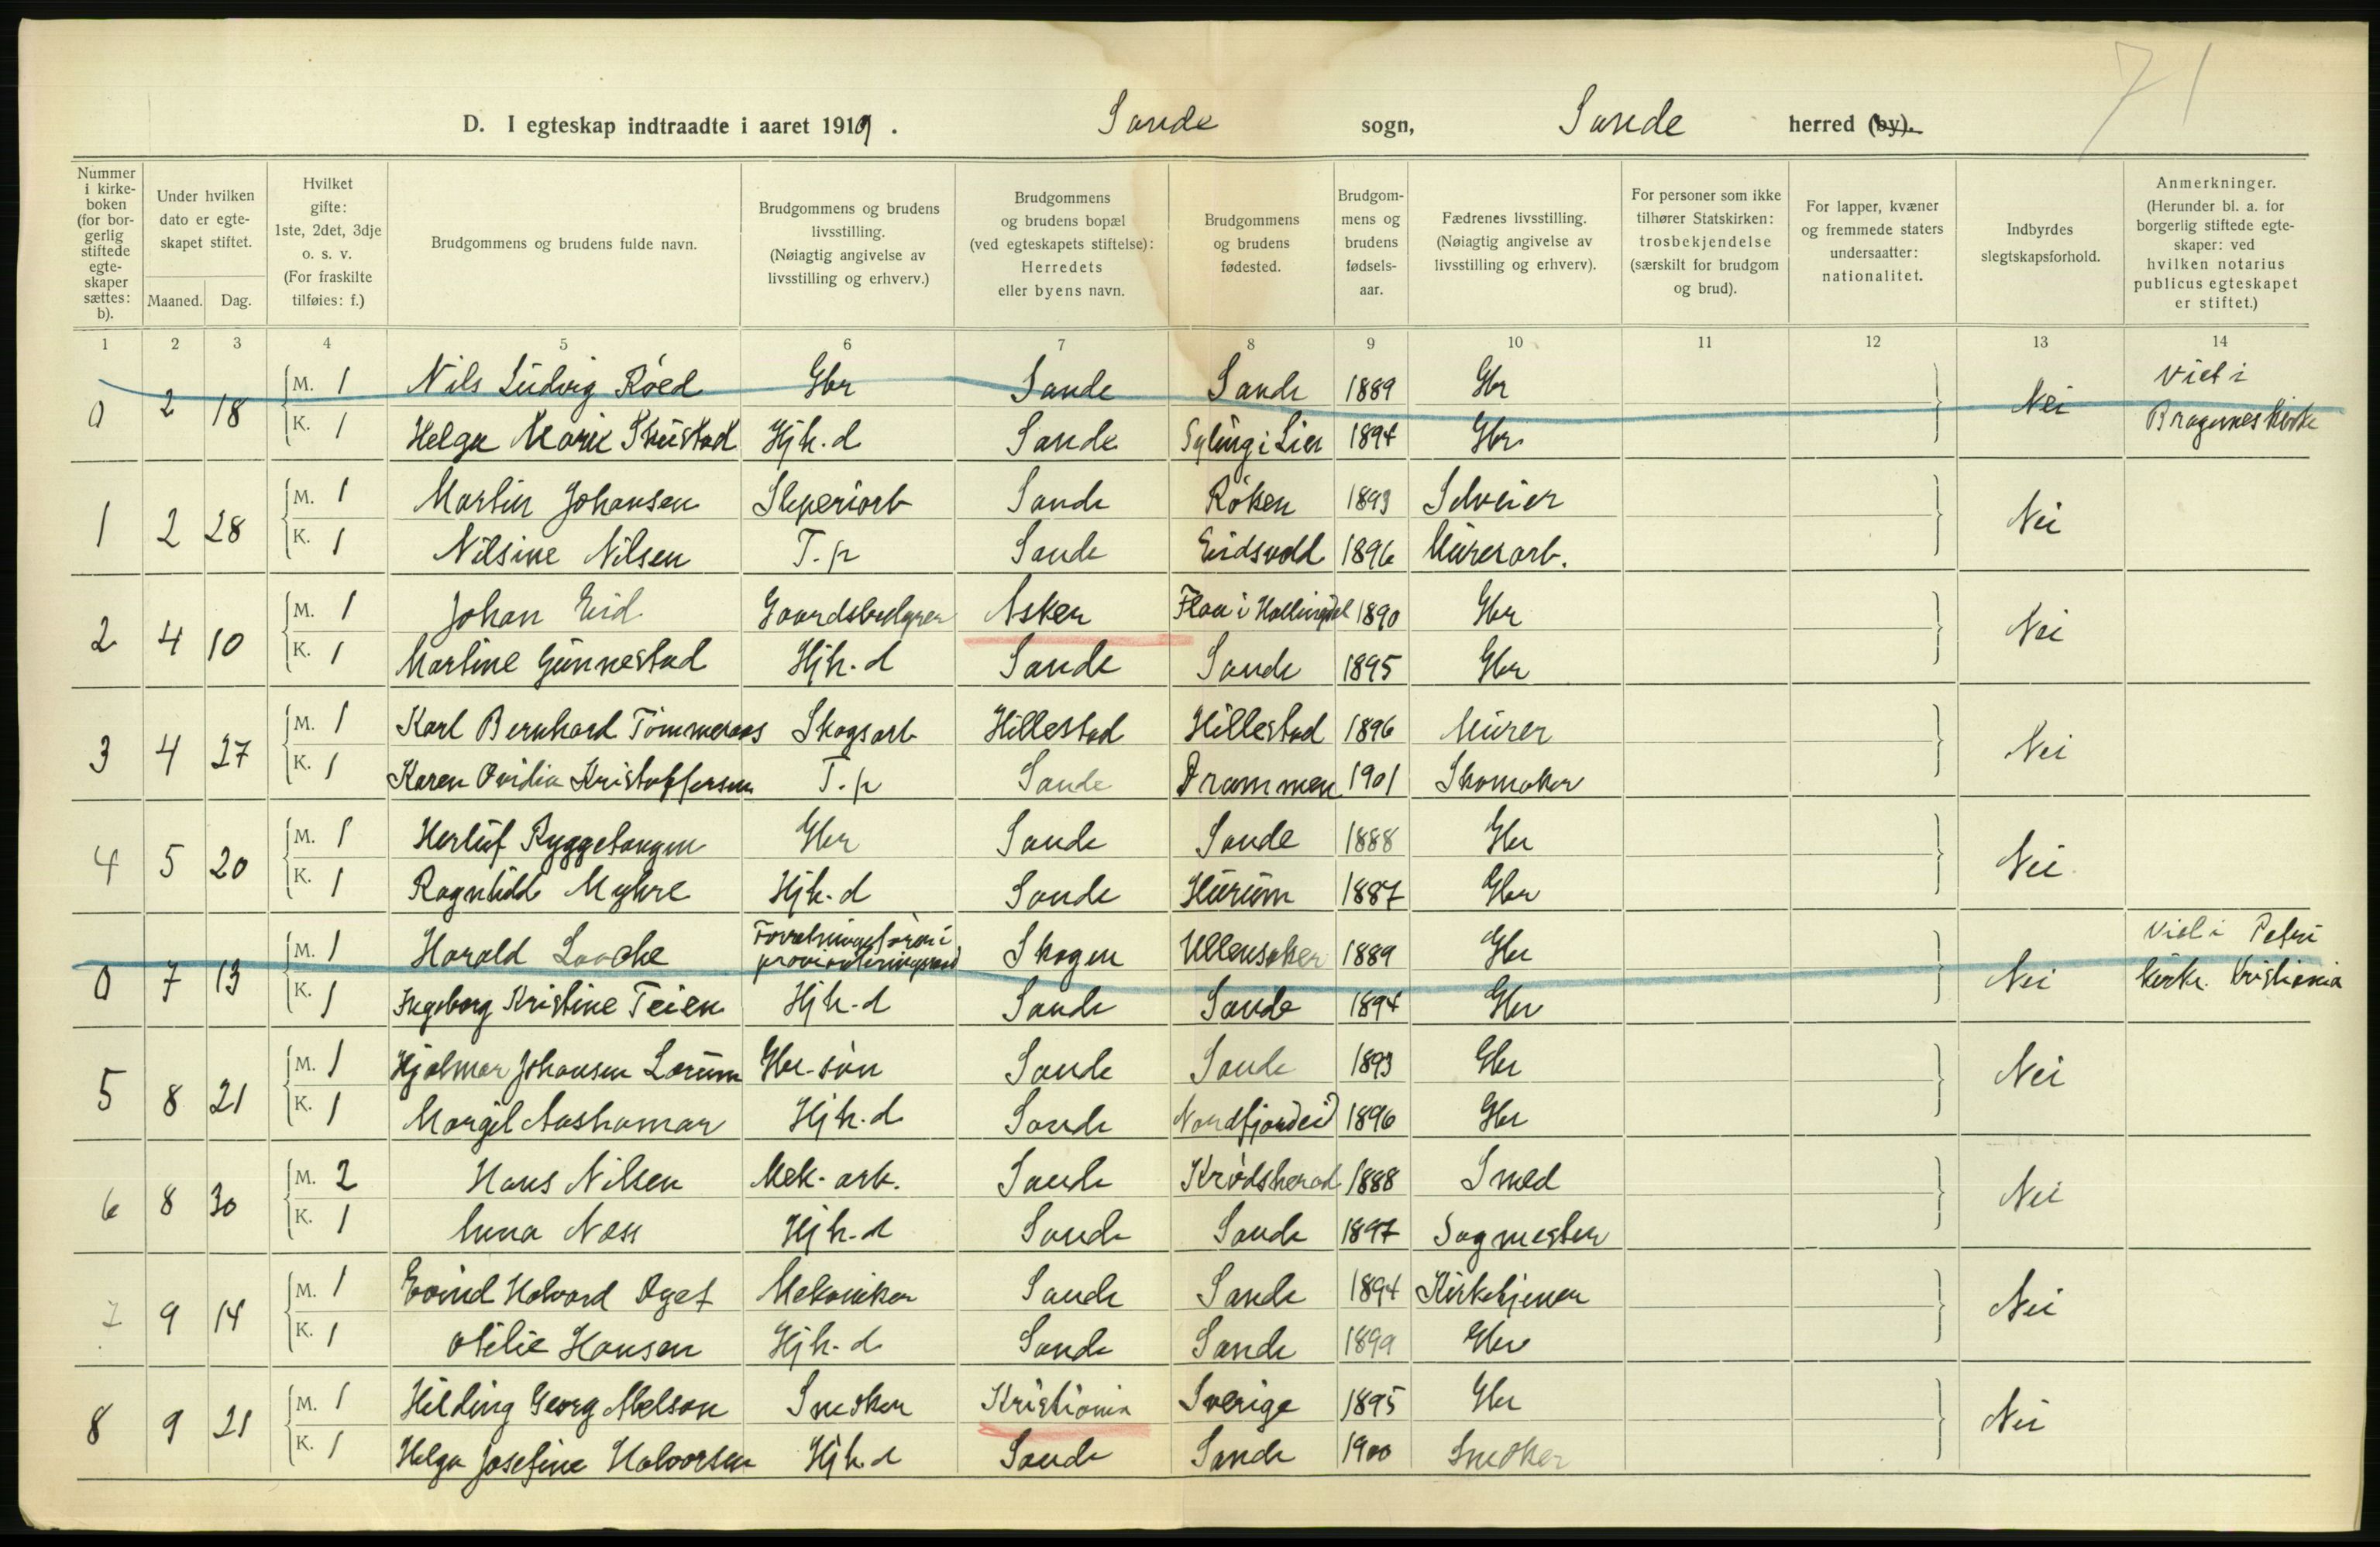 71
D. I egteskap indtraadte i aaret 1919. Sande sogn, Sande herred (by).
Nummer i kirkeboken (for borgerlig stiftede egteskaper sættes: b).
Under hvilken dato er egteskapet stiftet.
Maaned. Dag.
Hvilket gifte: 1ste, 2det, 3dje o. s. v. (For fraskilte tilføies: f.)
Brudgommens og brudens fulde navn.
Brudgommens og brudens livsstilling. (Nøiagtig angivelse av livsstilling og erhverv.)
Brudgommens og brudens bopæl (ved egteskapets stiftelse): Herredets eller byens navn.
Brudgommens og brudens fødested.
Brudgommens og brudens fødselsaar.
Fædrenes livsstilling. (Nøiagtig angivelse av livsstilling og erhverv).
For personer som ikke tilhører Statskirken: trosbekjendelse (særskilt for brudgom og brud).
For lapper, kvæner og fremmede staters undersaatter: nationalitet.
Indbyrdes slegtskapsforhold.
Anmerkninger. (Herunder bl. a. for borgerlig stiftede egteskaper: ved hvilken notarius publicus egteskapet er stiftet.)
1 2 3 4 5 6 7 8 9 10 11 12 13 14
0 2 18 M. 1 Nils Ludvig Røed Gbr Sande Sande 1889 Gbr Nei Viet i
K. 1 Helga Marie Skustad Hjh.d Sande Sylling i Lier 1894 Gbr Bragernes kirke
1 2 28 M. 1 Martin Johansen Sliperiarb Sande Røken 1893 Selveier Nei
K. 1 Nilsine Nilsen T.p Sande Eidsvold 1896 Murerarb.
2 4 10 M. 1 Johan Eid Gaardsbestyrer Asker Flaa i Hallingdal 1890 Gbr Nei
K. 1 Martine Gunnestad Hjh.d Sande Sande 1895 Gbr
3 4 27 M. 1 Karl Bernhard Tømmeraas Skogsarb Hillestad Hillestad 1896 Murer Nei
K. 1 Karen Ovidia Kristoffersen T.p Sande Drammen 1901 Skomaker
4 5 20 M. 1 Herluf Ryggetangen Gbr Sande Sande 1888 Gbr Nei
K. 1 Ragnhild Myhre Hjh.d Sande Hurum 1887 Gbr
0 7 13 M. 1 Harald Laache Skoger Ullensaker 1889 Gbr Nei Viet i Petri
K. 1 Ingeborg Kristine Teien Hjh.d Sande Sande 1894 Gbr kirke. Kristiania
5 8 21 M. 1 Hjalmar Johansen Lørum Gbr-søn Sande Sande 1893 Gbr Nei
K. 1 Margit Aashamar Hjh.d Sande Nordfjordeid 1896 Gbr
6 8 30 M. 2 Hans Nilsen Mek-arb. Sande Krødsherad 1888 Smed Nei
K. 1 Anna Næss Hjh.d Sande Sande 1897 Sagmester
7 9 14 M. 1 Eivind Halvard Mekaniker Sande Sande 1894 Kirketjener Nei
K. 1 Otilie Hansen Hjh.d Sande Sande 1899 Gbr
8 9 21 M. 1 Hilding Georg Snedker Kristiania Sverige 1895 Gbr Nei
K. 1 Helga Josefine Halvorsen Hjh.d Sande Sande 1900 Snedker